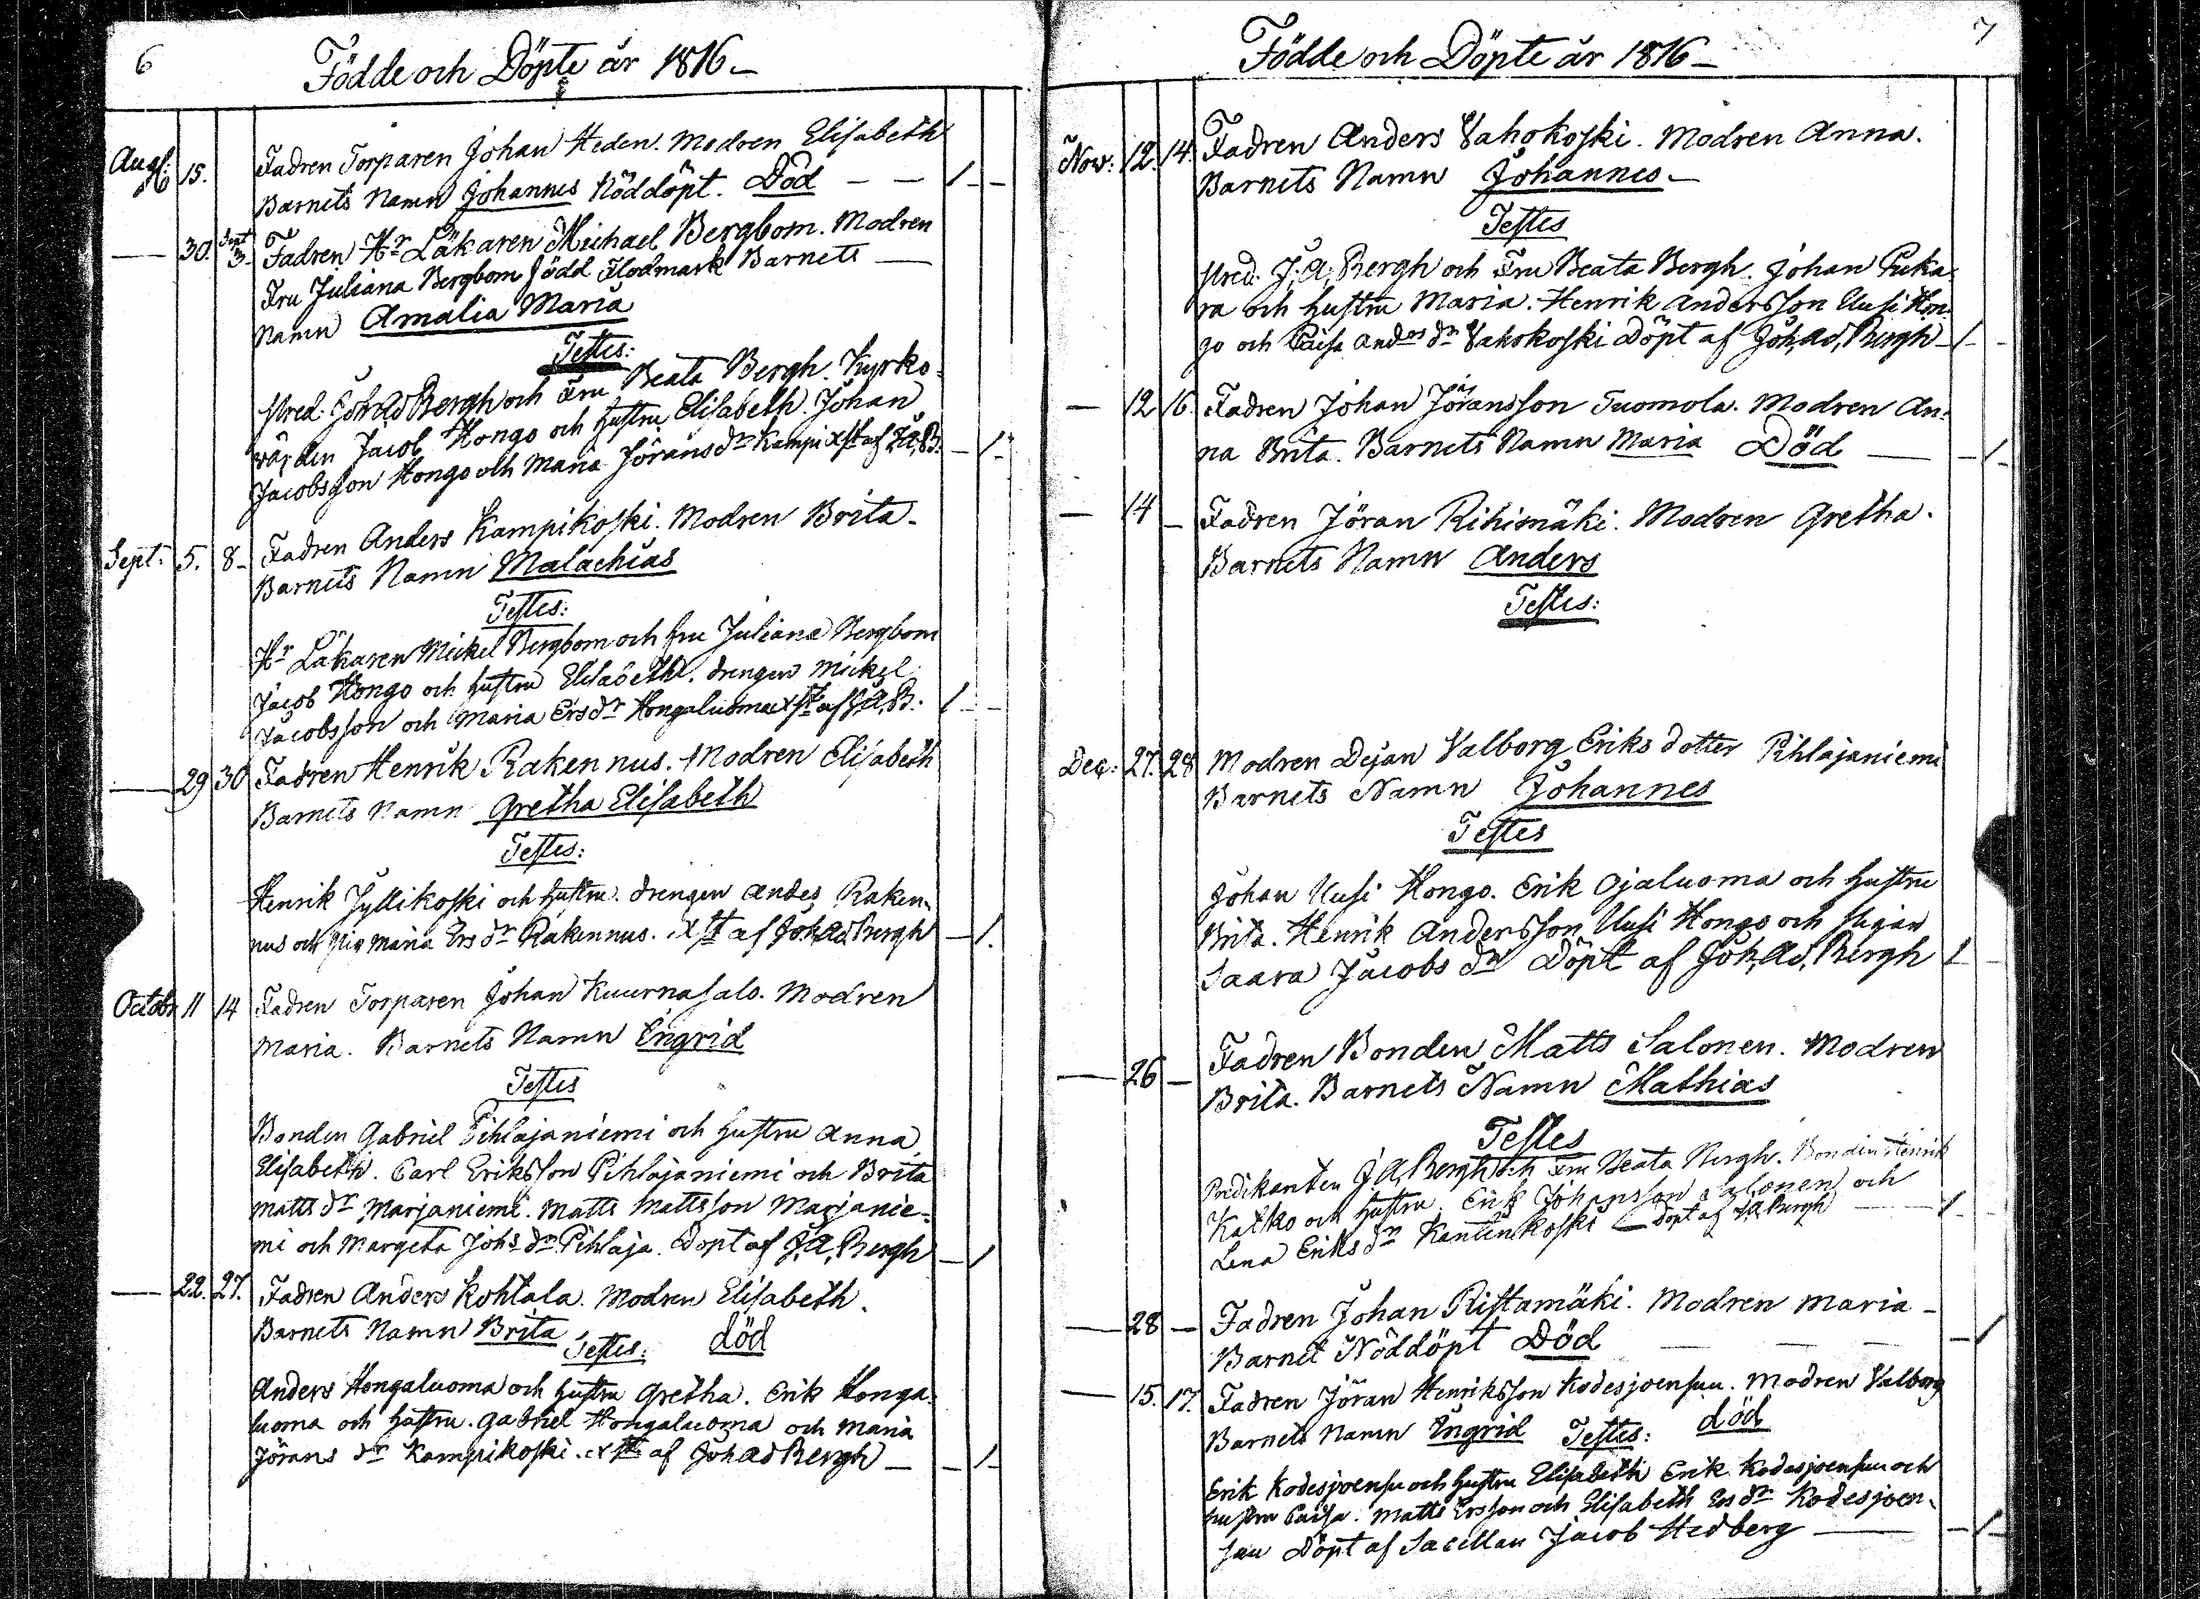 6
Födde och Döpte år 1816 –
Aug: 15. Fadren Torparen Johan Heden. Modren Elisabeth
Barnets Namn Johannes Nöddöpt. Död — — 1 -
— 30. Sept 3. Fadren Hr Läkaren Michael Bergbom. Modren
Fru Juliana Bergbom född Flodmark Barnets —
Namn Amalia Maria
Testes:
Pred: Joh Ad Bergh och Fru Beata Bergh. Kyrko-
värden Jacob Hongo och hustru Elisabeth. Johan
Jacobsson Hongo och Maria Jörans dr Kampi xst af J.A.B. – 1 -
Sept: 5. 8 - Fadren Anders Kampikoski. Modren Brita -
Barnets Namn Malachias
Testes:
Hr Läkaren Mickel Bergbom och fru Juliana Bergbom
Jacob Hongo och hustru Elisabeth. drengen Mickel
Jacobsson och Maria Ers dr Hongaluoma xst af J.A.B. 1 - -
— 29 30 Fadren Henrik Rakennus. Modren Elisabeth
Barnets Namn Gretha Elisabeth
Testes:
Henrik Jyllikoski och hustru. drengen Andes Raken-
nus och Pig Maria Ers dr Rakennus. xst af Joh Ad Bergh — 1.
Octobr 11 14 Fadren Torparen Johan Kuurnasalo. Modren
Maria. Barnets Namn Engrid
Testes
Bonden Gabriel Pihlajaniemi och hustru Anna
Elisabeth. Carl Eriksson Pihlajaniemi och Brita
Matts dr Marjaniemi. Matts Mattsson Marjanie-
mi och Margeta Johs dr Pihlaja. Döpt af J.A. Bergh — 1
— 22. 27. Fadren Anders Kohtala. Modren Elisabeth.
Barnets Namn Brita Testes: död
Anders Hongaluoma och hustru Gretha. Erik Honga-
luoma och hustru. Gabriel Hongaluoma och Maria
Jörans dr Kampikoski. xst af Joh Ad Bergh — - 1 -
7
Födde och Döpte år 1816 –
Nov: 12. 14. Fadren Anders Vahokoski. Modren Anna.
Barnets Namn Johannes –
Testes
Pred. J.A. Bergh och Fru Beata Bergh. Johan Puka-
ra och hustru Maria. Henrik Andersson Uusi Hon-
go och Caisa Anders dr Vahokoski Döpt af Joh. Ad. Bergh – 1 -
— 12 16. Fadren Johan Jöransson Tuomola. Modren An-
na Brita. Barnets Namn Maria Död — - 1 -
— 14 – Fadren Jöran Rihimäki. Modren Gretha.
Barnets Namn Anders
Testes:
Dec: 27. 28 Modren Dejan Valborg Eriks dotter Pihlajaniemi
Barnets Namn Johannes
Testes
Johan Uusi Hongo. Erik Ojaluoma och hustru
Brita. Henrik Andersson Uusi Hongo och pigan
Saara Jacobs dr Döpt af Joh. Ad. Bergh 1 -
— 26 – Fadren Bonden Matts Salonen. Modren
Brita. Barnets Namn Mathias
Testes
Predikanten J.A. Bergh och Fru Beata Bergh. Bonden Henrik
Katko och hustru. Erik Johansson Salonen och
Lena Eriks dr Kantinkoski — Döpt af J.A. Bergh — 1 -
— 28 – Fadren Johan Ristamäki. Modren Maria –
Barnet Nöddöpt Död — — — - 1
— 15. 17. Fadren Jöran Henriksson Kodesjoensuu. Modren Valborg
Barnets Namn Engrid Testes: död
Erik Kodesjoensu och hustru Elisabeth Erik Kodesjoensuu och
hustru Caisa. Matts Ersson och Elisabeth Ers dr Kodesjoen-
suu Döpt af Sacellan Jacob Hedberg — - 1 -